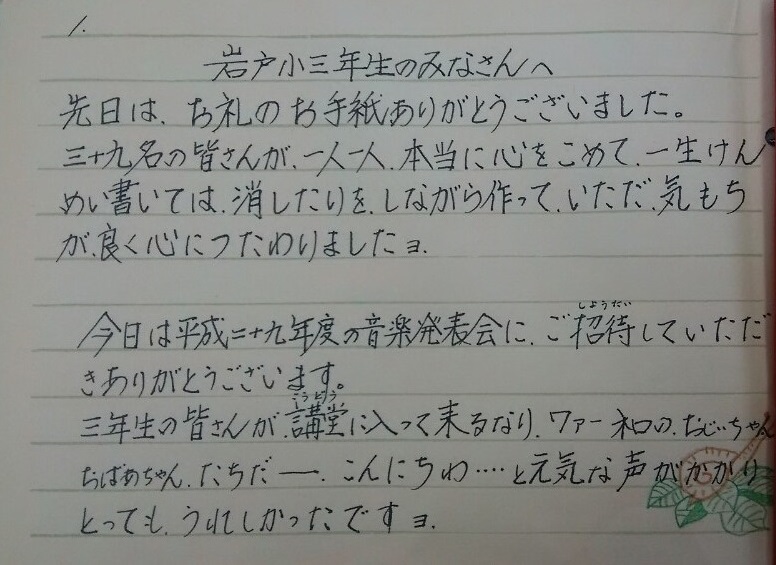 1.
岩戸小三年生のみなさんへ
先日は、お礼のお手紙ありがとうございました。
三十九名の皆さんが、一人一人、本当に心をこめて、一生けん
めい書いては、消したりを、しながら作って、いただ、気もち
が、良く心につたわりましたョ.
今日は平成二十九年度の音楽発表会に、ご招待していただ
しょうたい
きありがとうございます。
三年生の皆さんが、講堂に入って来るなり、ワァー和口の、おじいちゃん
こうどう
おばあちゃん、たちだー、こんにちわ‥‥と元気な声がかかり
とっても、うれしかったですョ.